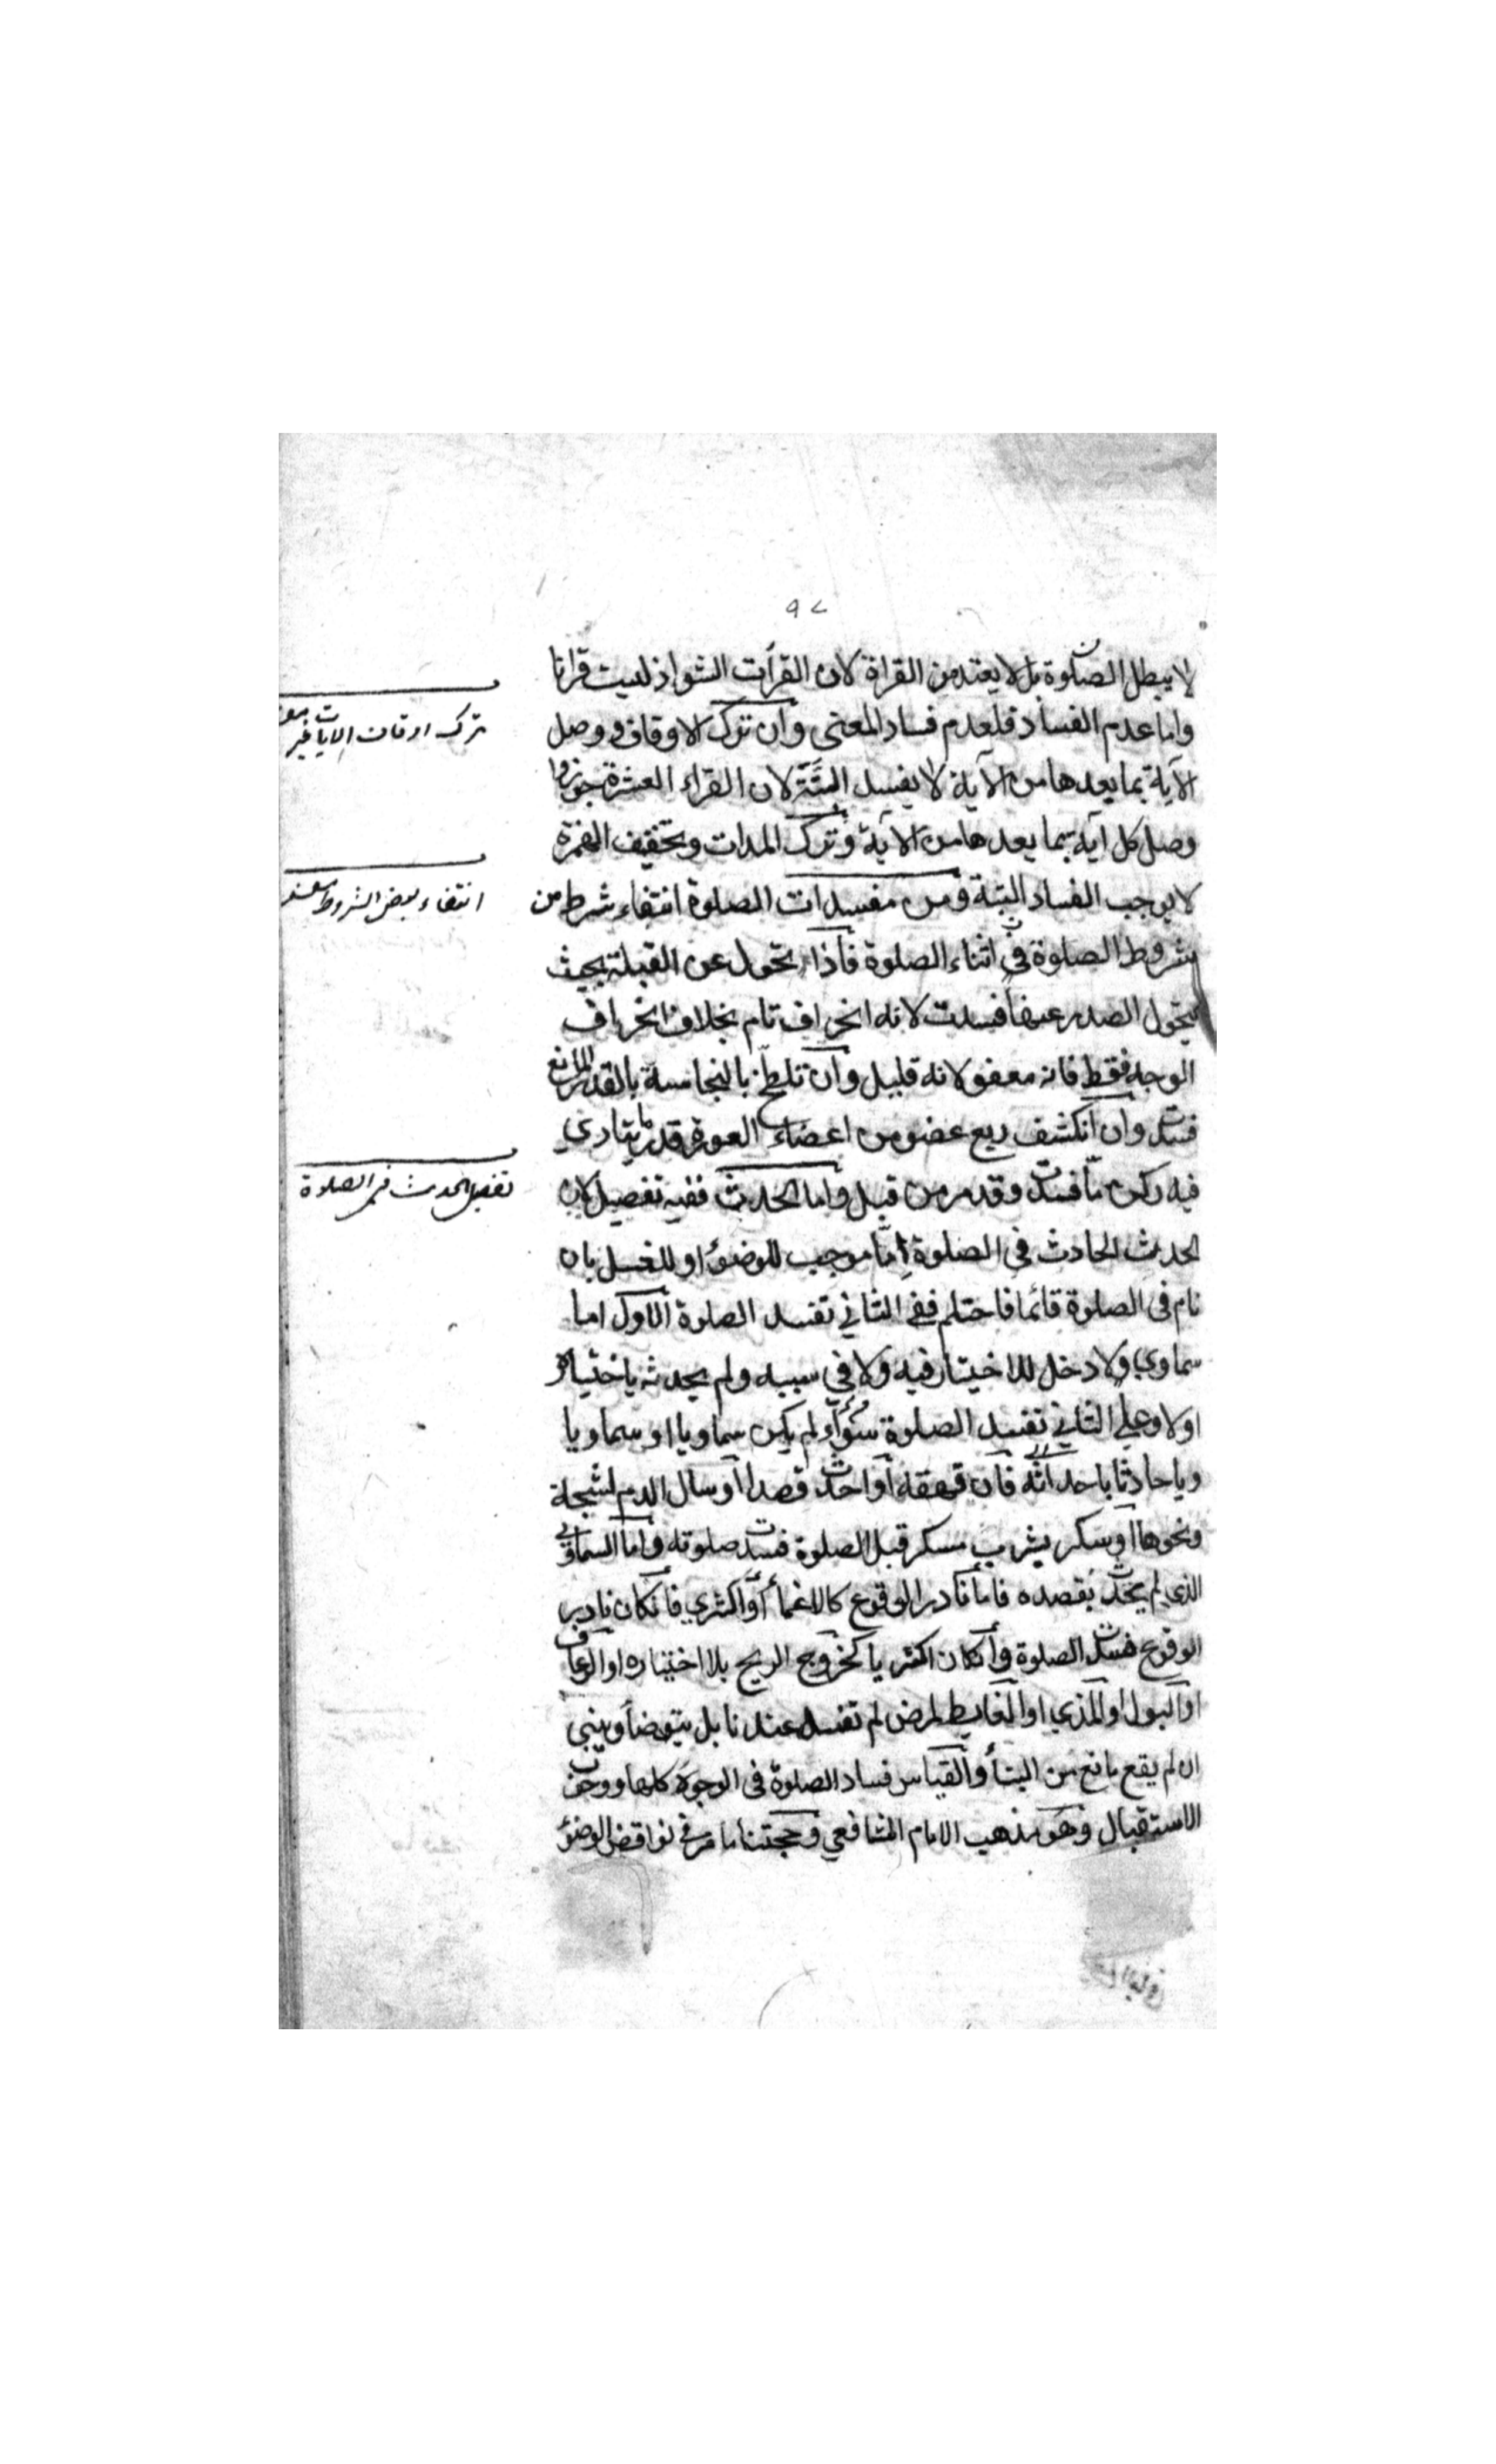 ٩٧
لا يبطل الصلوة بل لا يعتد من القراة لان القرأت الشواذ ليست قرانا
واما عدم الفساد فلعدم فساد المعنى وان ترك الاوقاف ووصل
الآية بما بعدها من الآية لا يفسد البتة لان القراء العشرة جوزوا
وصل كل آية بما بعدها من الآية وترك المدات وتخفيف الهمزة
لا يوجب الفساد البتة ومن مفسدات الصلوة انتفاء شرط من
شروط الصلوة في اثناء الصلوة فاذا تحول عن القبلة بحيث
يتحول الصدر عنها فسدت لانه انحراف تام بخلاف انحراف
الوجه فقط فانه معفو لانه قليل وان تلطخ بالنجاسة بالقدر المانع
فسدت وان انكشف ربع عضو من اعضاء العورة قدر ما يتادي
فيه ركن ما فسدت وقد مر من قبل واما الحدث ففيه تفصيل لان
الحدث الحادث في الصلوة اما موجب للوضوء او للغسل بان
نام في الصلوة قائما فاحتلم ففي الثاني تفسد الصلوة الاول اما
سماوي ولا دخل للاختيار فيه ولا في سببه ولم يحدثه باختياره
اولا وعلى الثاني تفسد الصلوة سواء لم يكن سماويا او سماويا
ويا حادثا باحداثه فان قهقه او احدث قصدا او سال الدم لشجة
ونحوها او سكر بشرب مسكر قبل الصلوة فسدت صلوته واما السماوي
الذي لم يحدث بقصده فاما نادر الوقوع كالاغماء او اكثري فان كان نادر
الوقوع فسدت الصلوة وان كان اكثريا كخروج الريح بلا اختياره او الرعاف
او البول او المذي او الغايط لمرض لم تفسد عندنا بل يتوضأ ويبني
ان لم يقع مانع من البنأ والقياس فساد الصلوة في الوجوه كلها ووجوب
الاستقبال وهو مذهب الامام الشافعي وحجتنا ما مر في نواقض الوضوء
ترك اوقاف الايات غير
انتفاء بعض الشروط مفسد
تفصيل الحدث في الصلوة